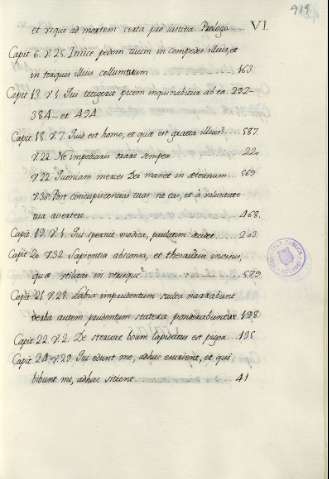 919
et usque ad mortem certa pro iustitia Prologo VI.
Capit 6. V. 25. Iniice pedem tuum in compedes illius, et
in torques illius collum tuum 163
Capit 13. V. 1. Qui tetigerit picem inquinabitur ab ea. 292-
384 et 494
Capit 18. V. 7. Quid est homo, et qua est gratia illius? 587
V. 22. Ne impediaris orare semper 22
V. 22. Quoniam merces Dei manet in aeternum 569
V. 30. Post concupiscentias tuas ne eas, et a voluntate
tua avertere 268.
Capit. 19. V. 1. Qui spernit modica, paulatim decidet 263
Capit 20. V. 32. Sapientia absconsa, et thesaurus invisus,
quae utilitas in utrisque? 579
Capit 21. V. 28. Labia imprudentium stulta narrabunt
verba autem prudentum statera ponderabuntur 198
Capit 22. V. 2. De stercore boum lapidatus est piger 195
Capit 24. V. 29. Qui edunt me, adhuc esurient, et qui
bibunt me, adhuc sitient 41